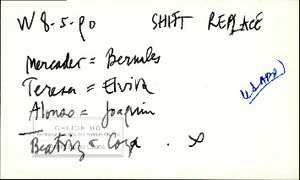 W 8-5-90 SHIFT REPLACE
Mercader = Bernales
Teresa = Elvira
Alonso = Joaquin
Beatriz = Coya . x